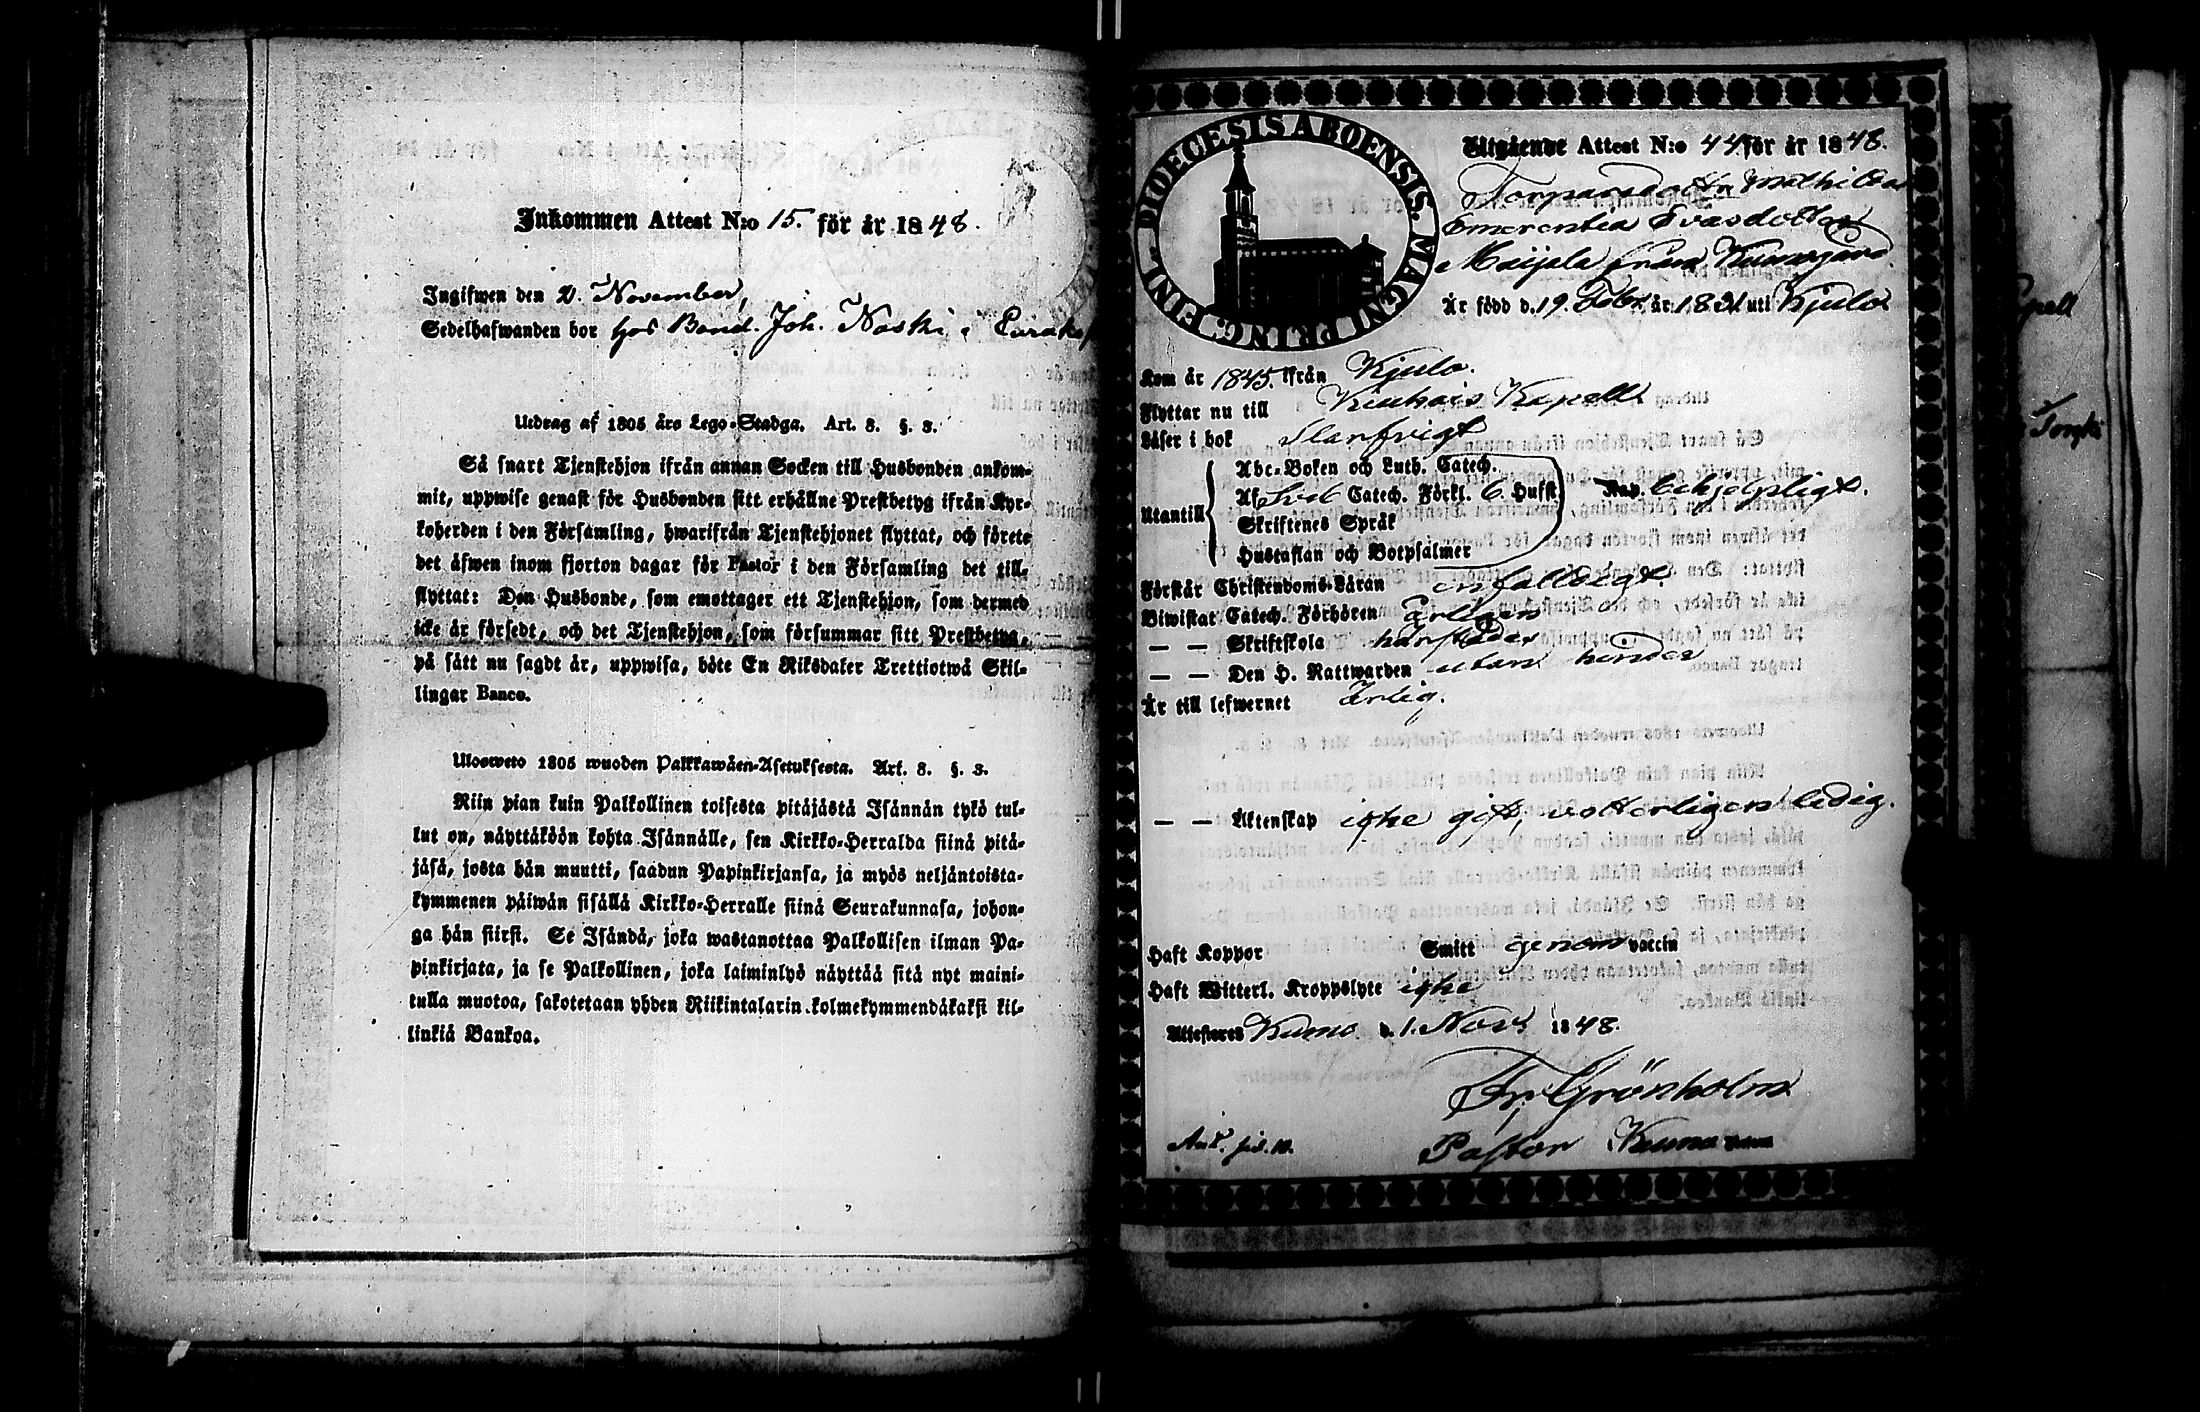 Inkommen Attest N:o 15. för år 1848.
Ingifwen den 2. November,
Sedelhafwanden bor hos Bond. Joh. Naski i
Utdrag af 1805 års Lego-Stadga. Art. 8. §. 3.
Så snart Tjenstehjon ifrån annan Socken till Husbonden ankom-
mit, uppwise genast för Husbonden sitt erhållne Prestbetyg ifrån Kyr-
koherden i den Församling, hwarifrån Tjenstehjonet flyttat, och förete
det äfwen inom fjorton dagar för Pastor i den Församling det till-
flyttat: Den Husbonde, som emottager ett Tjenstehjon, som dermed
icke är försedt, och det Tjenstehjon, som försummar sitt Prestbetyg,
på sätt nu sagdt är, uppwisa, böte En Riksdaler Trettiotwå Skil-
lingar Banco.
Ulosweto 1805 wuoden Palkkawäen-Asetuksesta. Art. 8. §. 3.
Niin pian kuin Palkollinen toisesta pitäjästä Isännän tykö tul-
lut on, näyttäköön kohta Isännälle, sen Kirkko-Herralda siinä pitä-
jäsä, josta hän muutti, saadun Papinkirjansa, ja myös neljäntoista-
kymmenen päiwän sisällä Kirkko-Herralle siinä Seurakunnasa, johon-
ga hän siirsi. Se Isändä, joka wastanottaa Palkollisen ilman Pa-
pinkirjata, ja se Palkollinen, joka laiminlyö näyttää sitä nyt maini-
tulla muotoa, sakotetaan yhden Riikintalarin kolmekymmendäkaksi kil-
linkiä Bankoa.
DIOECESIS ABOENSIS. MAGNI PRINC. FINL.
Utgående Attest N:o 44 för år 1848.
Torparedottr Mathilda
Emerentia Evasdotter
Maijala från Kumogård
Är född d. 19. Febr. år 1831 uti Kjulo
Kom år 1845. ifrån Kjulo.
Flyttar nu till Kiukais Kapell
Läser i bok Slarfvigt
Utantill
Abc-Boken och Luth. Catech.
Af Sveb Catech. Förkl. 6. Hufst.
Skriftenes Språk
Hustaflan och Botpsalmer
behjelpligt.
Förstår Christendoms-Läran enfalldigt
Biwistat Catech. Förhören årligen
— — Skriftskola härstädes
— — Den H. Nattwarden utan hinder
Är till lefwernet ärlig.
— — Äktenskap icke gift, votterligen ledig.
Haft Koppor Smitt genom vaccin
Haft Witterl. Kroppslyte icke
Attesteres Kumo d. 1. Nov. 1848.
Fr. Grönholm
Pastor Kumo